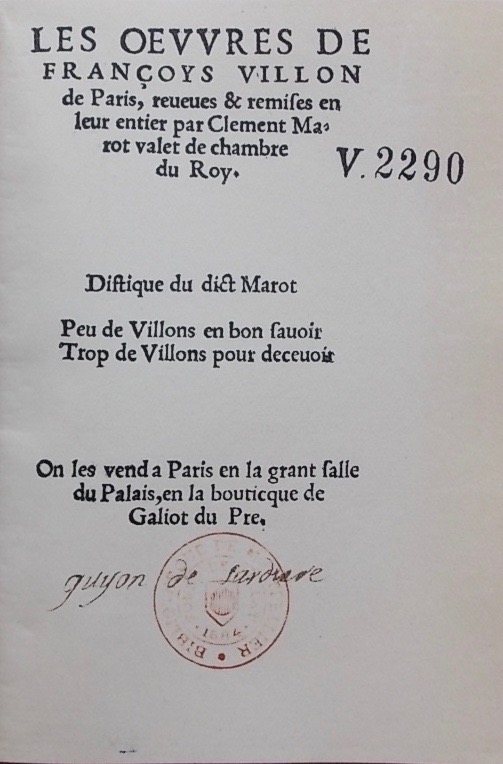 LES OEVVRES DE
FRANÇOYS VILLON
de Paris, reueues & remiſes en
leur entier par Clement Ma-
rot valet de chambre
du Roy.
V. 2290
Diſtique du dict Marot
Peu de Villons en bon ſauoir
Trop de Villons pour deceuoir
On les vend a Paris en la grant ſalle
du Palais, en la bouticque de
Galiot du Pre.
guyon de Sardiere